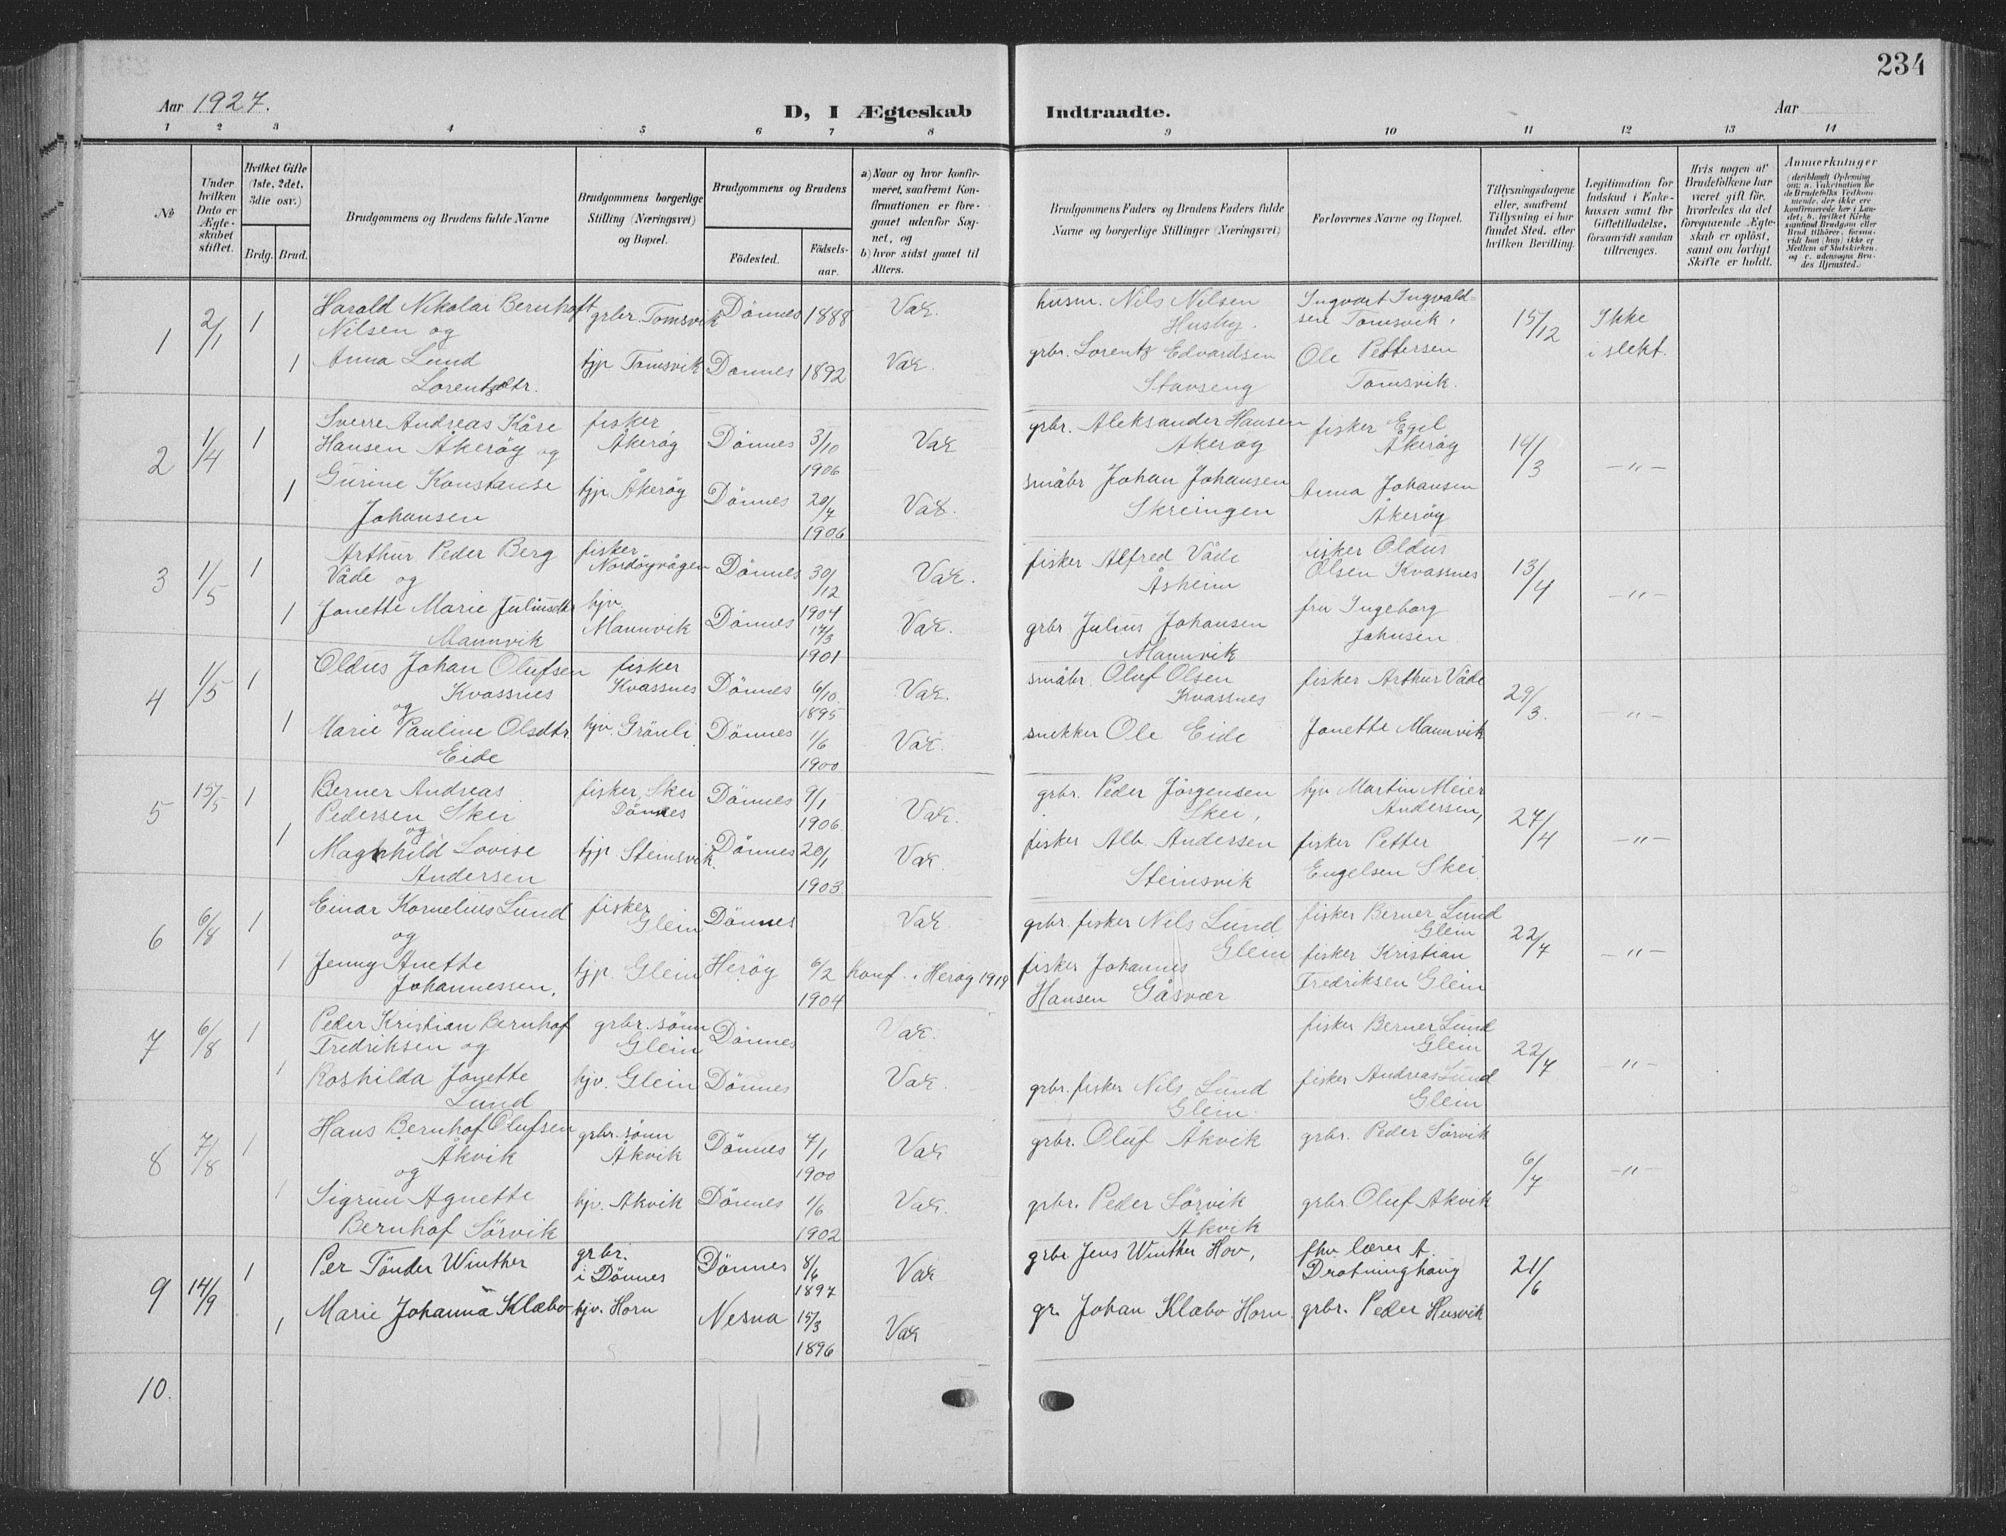 234
Aar 1927.
D, I Ægteskab Indtraadte.
Aar
1 2 3 4 5 6 7 8 9 10 11 12 13 14
№
Under hvilken Dato er Ægteskabet stiftet.
Hvilket Gifte (1ste, 2det, 3die osv.)
Brdg. Brud.
Brudgommens og Brudens fulde Navne
Brudgommens borgerlige Stilling (Næringsvei) og Bopæl.
Brudgommens og Brudens
Fødested.
Fødselsaar.
a) Naar og hvor konfirmeret, saafremt Konfirmationen er foregaaet udenfor Sognet, og
b) hvor sidst gaaet til Alters.
Brudgommens Faders og Brudens Faders fulde Navne og borgerlige Stillinger (Næringsvei)
Forlovernes Navne og Bopæl.
Tillysningsdagene eller, saafremt Tillysning ei har fundet Sted, efter hvilken Bevilling.
Legitimation for Indskud i Enkekassen samt for Giftetilladelse, forsaavidt saadan tiltrænges.
Hvis nogen af Brudefolkene har været gift før, hvorledes da det foregaaende Ægteskab er opløst, samt om lovligt Skifte er holdt.
Anmærkninger
1 2/1 1 Harald Nikolai Bernhoft grbr. Tomsvik Dönnes 1888 Vak. husm. Nils Nilsen Ingvart Ingvald- 15/12 Ikke
Nilsen og Husby. sen Tomsvik, i slekt.
1 Anna Lund tjp Tomsvik Dønnes 1892 Vak. grbr. Lorentz Edvardsen Ole Pettersen
Lorentzdtr. Stavseng Tomsvik.
2 1/4 1 Sverre Andreas Kåre fisker Dönnes 3/10 1906 Vak grbr. Aleksander Hansen fisker Egil 14/3 -"-
Hansen Åkeröy og Åkeröy Akerøy Åkeröy
1 Gurine Konstanse tjp Åkeröy Dönnes 20/7 1906 Vak. småbr Johan Johansen Anna Johansen
Johansen Skreingen Åkeröy
3 1/5 1 Arthur Peder Berg fisker Dönnes 30/12 1904 Vak. fisker Alfred Våde fisker Oldus 13/4 -"-
Våde og Nordöyvågen Åsheim Olsen Kvassnes
1 Jonette Marie Juliusdtr hjv Dönnes 17/3 1901 Vak. grbr Julius Johansen fru Ingeborg
Mannvik Mannvik Mannvik Johnsen
4 1/5 1 Oldus Johan Olufsen fisker Dönnes 6/10 1895 Vak. småbr. Oluf Olsen fisker Arthur Våde 29/3. -"-
Kvassnes Kvassnes Kvassnes
og
1 Marie Pauline Olsdtr hjv. Grönli Dönnes 1/6 1900 Vak. snekker Ole Eide Jonette Mannvik
Eide
5 15/5 1 Berner Andreas fisker, Skei Dönnes 9/1 1906 Vak. grbr. Peder Jörgensen hjv Martin Meier 27/4 -"-
Pedersen Skei Dönnes Skei, Andersen,
og
1 Magnhild Lovise tjp Steinsvik. Dönnes 20/1 1903 Vak fisker Alb. Andersen fisker Petter
Andersen Steinsvik Engelsen Skei
6 6/8 1 Einar Kornelius Lund fisker Dönnes Vak grbr. fisker Nils Lund fisker Berner Lund 22/7 -"-
og Glein Glein Glein
1 Jenny Anette tjp. Glein Heröy 6/2 1904 Konf. i Heröy 1919 fisker Johannes fisker Kristian
Johannessen, Hansen Gåsvær Fredriksen Glein
7 6/8 1 Peder Kristian Bernhof grbr. sönn Dönnes Vak. fisker Berner Lund 22/7 -"-
Fredriksen og Glein Glein
1 Roshilda Jonette hjv. Glein Dönnes Vak. grbr. fisker Nils Lund fisker Andreas Lund
Lund Glein. Glein
8 7/8 1 Hans Bernhof Olufsen grbr. sönn Dönnes 7/1 1900 Vak grbr. Oluf Åkvik grbr. Peder Sörvik 6/7 -"-
Åkvik Åkvik
og
1 Sigrun Agnette hjv. Akvik Dönnes 1/6 1902 Vak. grbr. Peder Sörvik grbr. Oluf Akvik
Bernhof Sörvik Åkvik
9 14/9 1 Per Tönder Winther grbr. Dönnes 8/6 1897 Vak grbr Jens Winther Hov, fhv. lærer A. 21/6
i Dönnes Drotninghaug
1 Marie Johanna Klæbo hjv. Horn Nesna 15/3 1896 Vak gr. Johan Klæbo Horn. grbr. Peder Husvik
10.